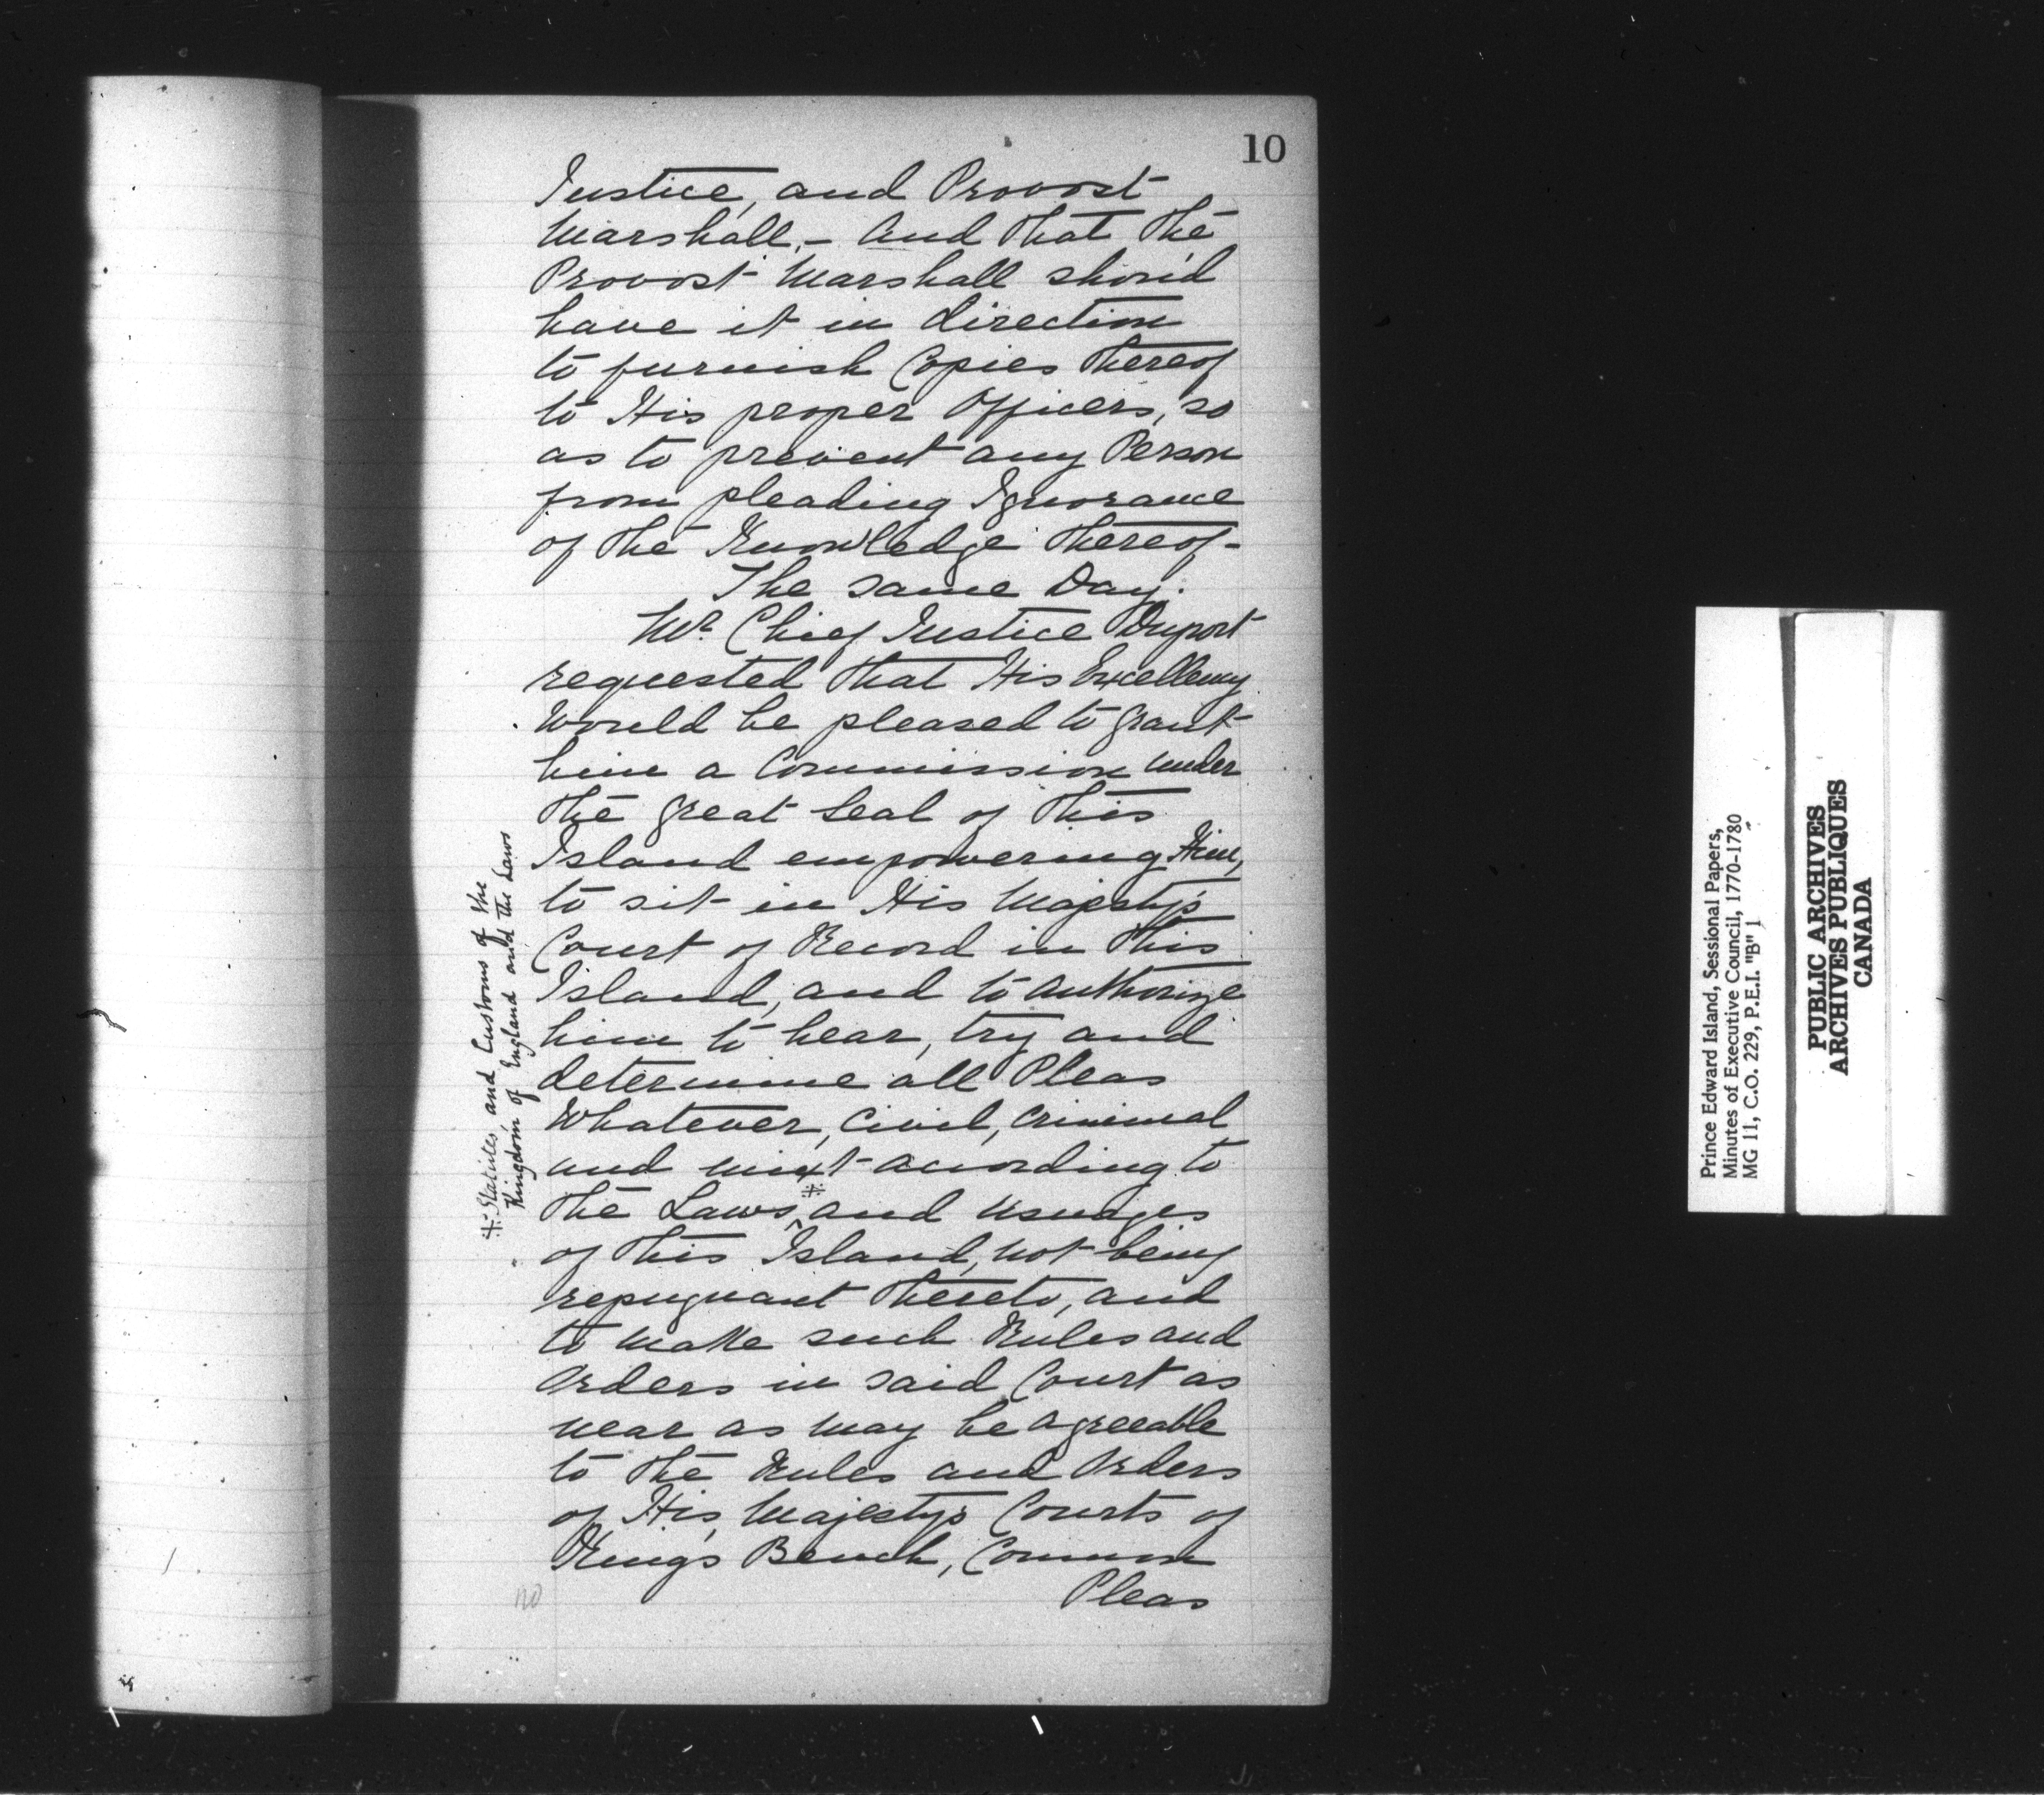 10
Justice, and Provost
Marshall, – And that the
Provost Marshall shou'd
have it in direction
to furnish Copies thereof
to His proper Officers, so
as to prevent any Person
from pleading Ignorance
of the Knowledge thereof –
The same Day.
Mr Chief Justice Duport
requested that His Excellency
Would be pleased to grant
him a Commission under
the great Seal of this
Island empowering Him,
to sit in His Majesty's
Court of Record in this
Island, and to authorize
him to hear, try and
determine all Pleas
Whatever, Civil, Criminal
and mixt according to
the Laws ※ and Usuages
of this Island, not being
repugnant thereto, and
to make such Rules and
Orders in said Court as
near as may be agreeable
to the Rules and Orders
of His Majesty's Courts of
King's Bench, Common
Pleas
※ Statutes, and Customs of the
Kingdom of England and the Laws
Prince Edward Island, Sessional Papers,
Minutes of Executive Council, 1770-1780
MG 11, C.O. 229, P.E.I. "B" 1
PUBLIC ARCHIVES
ARCHIVES PUBLIQUES
CANADA